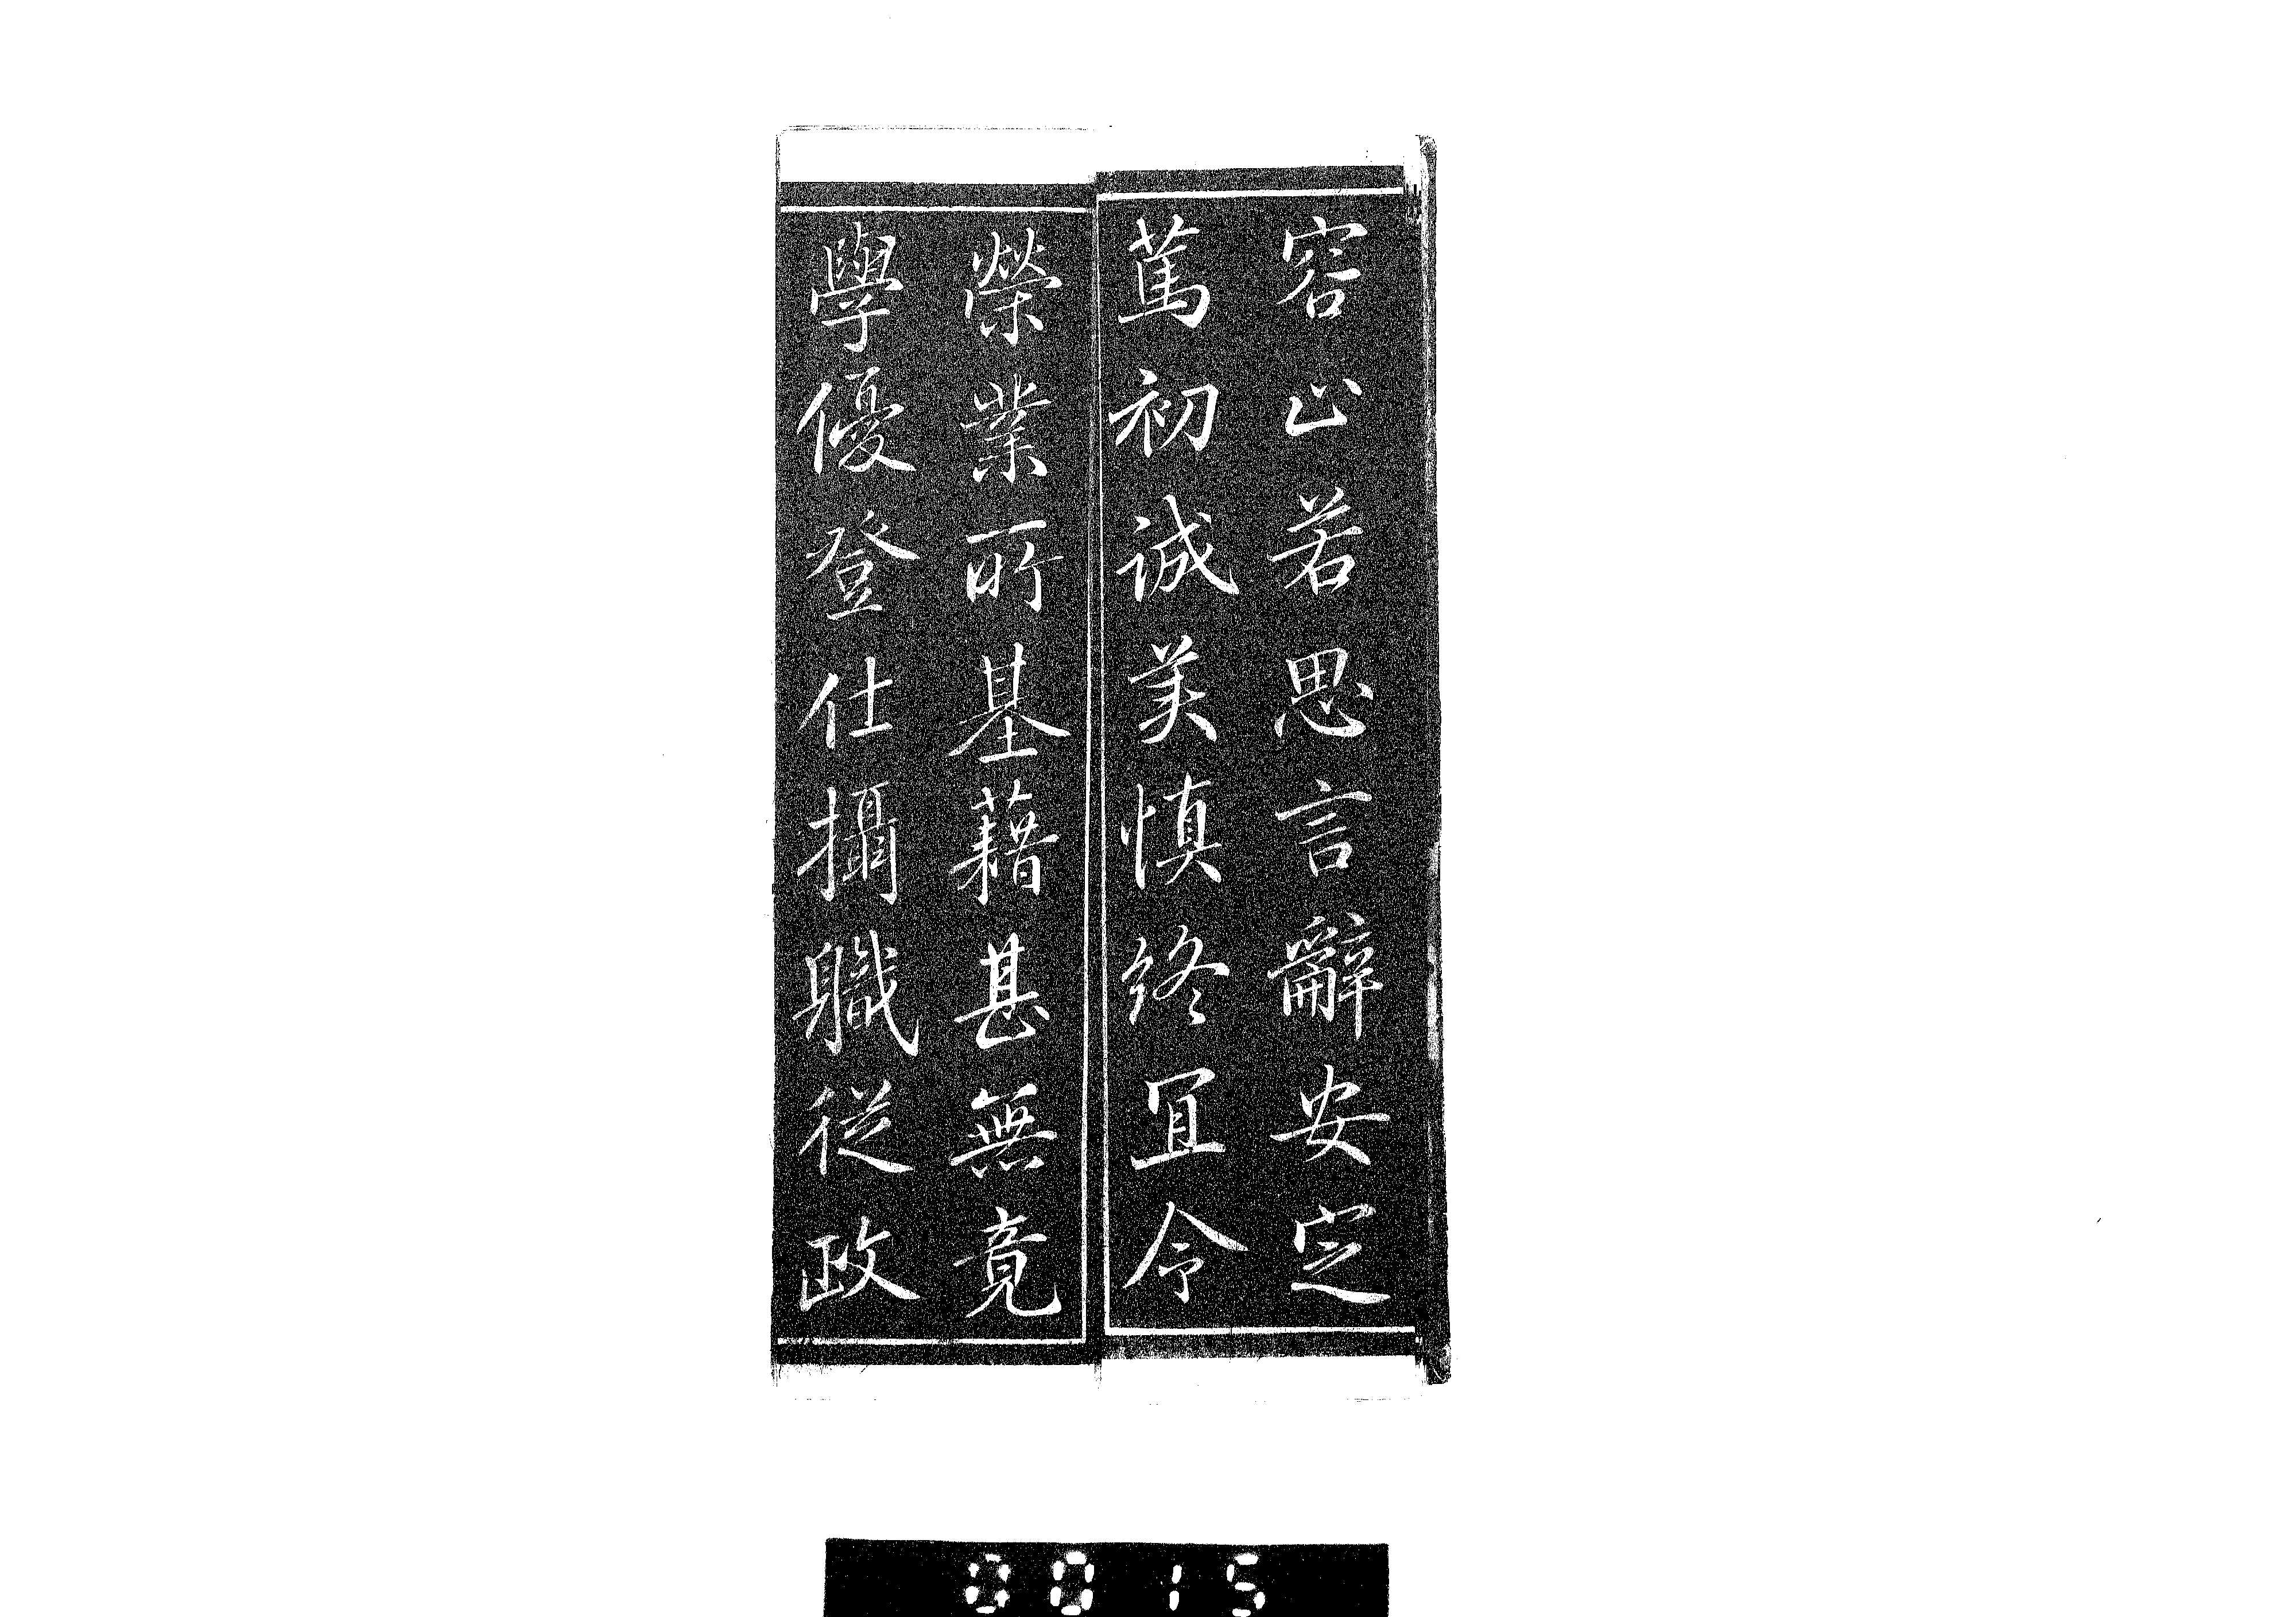 容止若思言辭安定
篤初誠美慎終宜令
榮業所基藉甚無竟
學優登仕攝職從政
0015